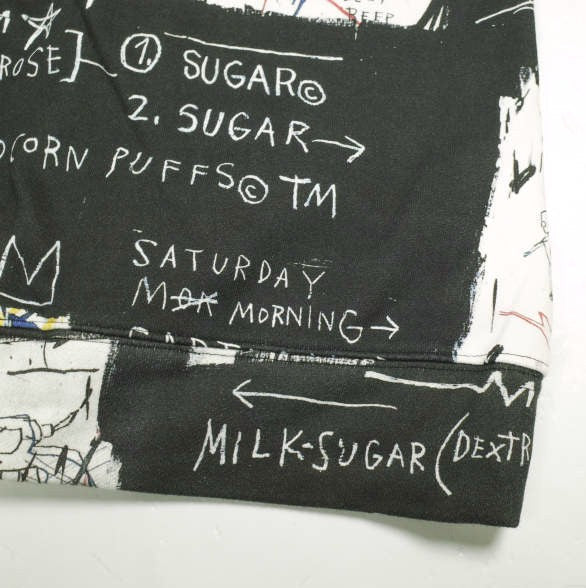 BEEP
ROSE]
1. SUGAR©
2. SUGAR→
CORN PUFFS© TM
SATURDAY
MOR MORNING→
←
MILK-SUGAR (DEXTR